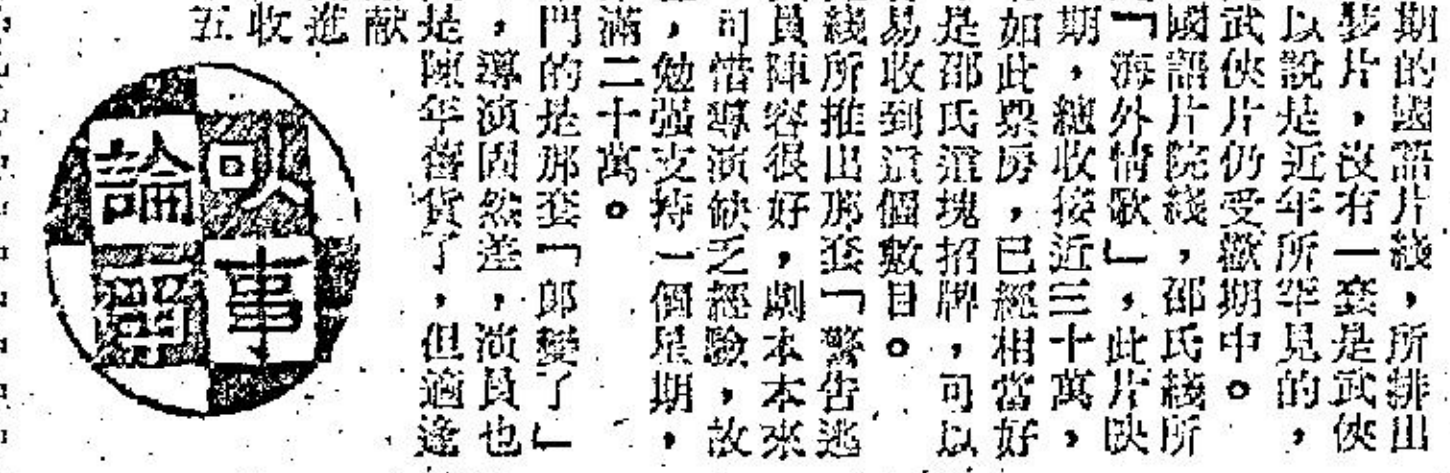 期的國語片綫，所排出
片，沒有一套是武俠
以說是近年所罕見的，
武俠片仍受歡期中。
國語片院綫，邵氏綫所
「海外情歌」，此片映
期，總收接近三十萬，
如此票房，已經相當好
是邵氏這塊招牌，可以
易收到這個數目。
綫所推出那套「警告逃
員陣容很好，劇本本來
可惜導演缺乏經驗，故
，勉强支持一個星期，
滿二十萬。
門的是那套「郎變了」
，導演固然差，演員也
是陳年舊貨了，但適逢
献
進
收
五
事
論